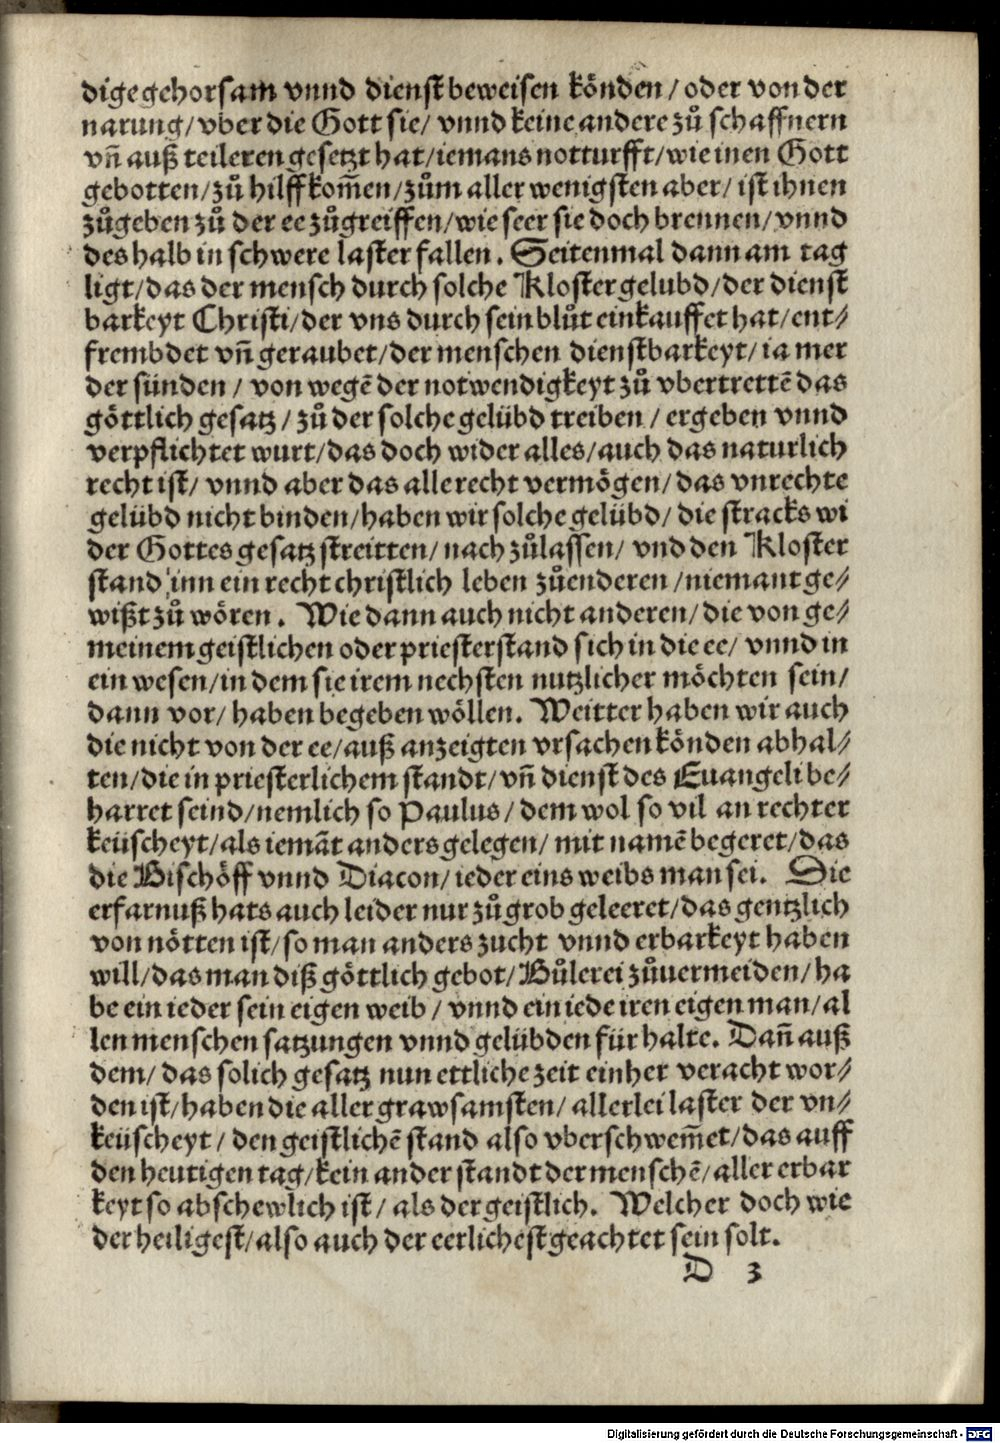 dige gehorsam vnnd dienst beweisen könden / oder von der
narung / vber die Gott sie / vnnd keine andere zů schaffnern
vn̄ auß teileren gesetzt hat / iemans notturfft / wie inen Gott
gebotten / zů hilff kom̄en / zům aller wenigsten aber / ist ihnen
zůgeben zů der ee zůgreiffen / wie seer sie doch brennen / vnnd
des halb in schwere laster fallen. Seitenmal dann am tag
ligt / das der mensch durch solche Kloster gelubd / der dienst
barkeyt Christi / der vns durch sein blůt einkauffet hat / ent⸗
frembdet vn̄ geraubet / der menschen dienstbarkeyt / ia mer
der sünden / von wegē der notwendigkeyt zů vbertrettē das
göttlich gesatz / zů der solche gelübd treiben / ergeben vnnd
verpflichtet wurt / das doch wider alles / auch das naturlich
recht ist / vnnd aber das alle recht vermögen / das vnrechte
gelübd nicht binden / haben wir solche gelübd / die stracks wi
der Gottes gesatz streitten / nach zůlassen / vnd den Kloster
stand inn ein recht christlich leben zůenderen / niemant ge⸗
wißt zů wören. Wie dann auch nicht anderen / die von ge⸗
meinem geistlichen oder priesterstand sich in die ee / vnnd in
ein wesen / in dem sie irem nechsten nutzlicher möchten sein /
dann vor / haben begeben wöllen. Weitter haben wir auch
die nicht von der ee / auß anzeigten vrsachen könden abhal⸗
ten / die in priesterlichem standt / vn̄ dienst des Euangeli be⸗
harret seind / nemlich so Paulus / dem wol so vil an rechter
keüscheyt / als iemāt anders gelegen / mit namē begeret / das
die Bischöff vnnd Diacon / ieder eins weibs man sei. Die
erfarnuß hats auch leider nur zů grob geleeret / das gentzlich
von nötten ist / so man anders zucht vnnd erbarkeyt haben
will / das man diß göttlich gebot / Bůlerei zůuermeiden / ha
be ein ieder sein eigen weib / vnnd ein iede iren eigen man / al
len menschen satzungen vnnd gelübden für halte. Dan̄ auß
dem / das solich gesatz nun ettliche zeit einher veracht wor⸗
den ist / haben die aller grawsamsten / allerlei laster der vn⸗
keüscheyt / den geistlichē stand also vberschwem̄et / das auff
den heutigen tag / kein ander standt der menschē / aller erbar
keyt so abschewlich ist / als der geistlich. Welcher doch wie
der heiligest / also auch der eerlichest geachtet sein solt.
D 3
Digitalisierung gefördert durch die Deutsche Forschungsgemeinschaft - DFG